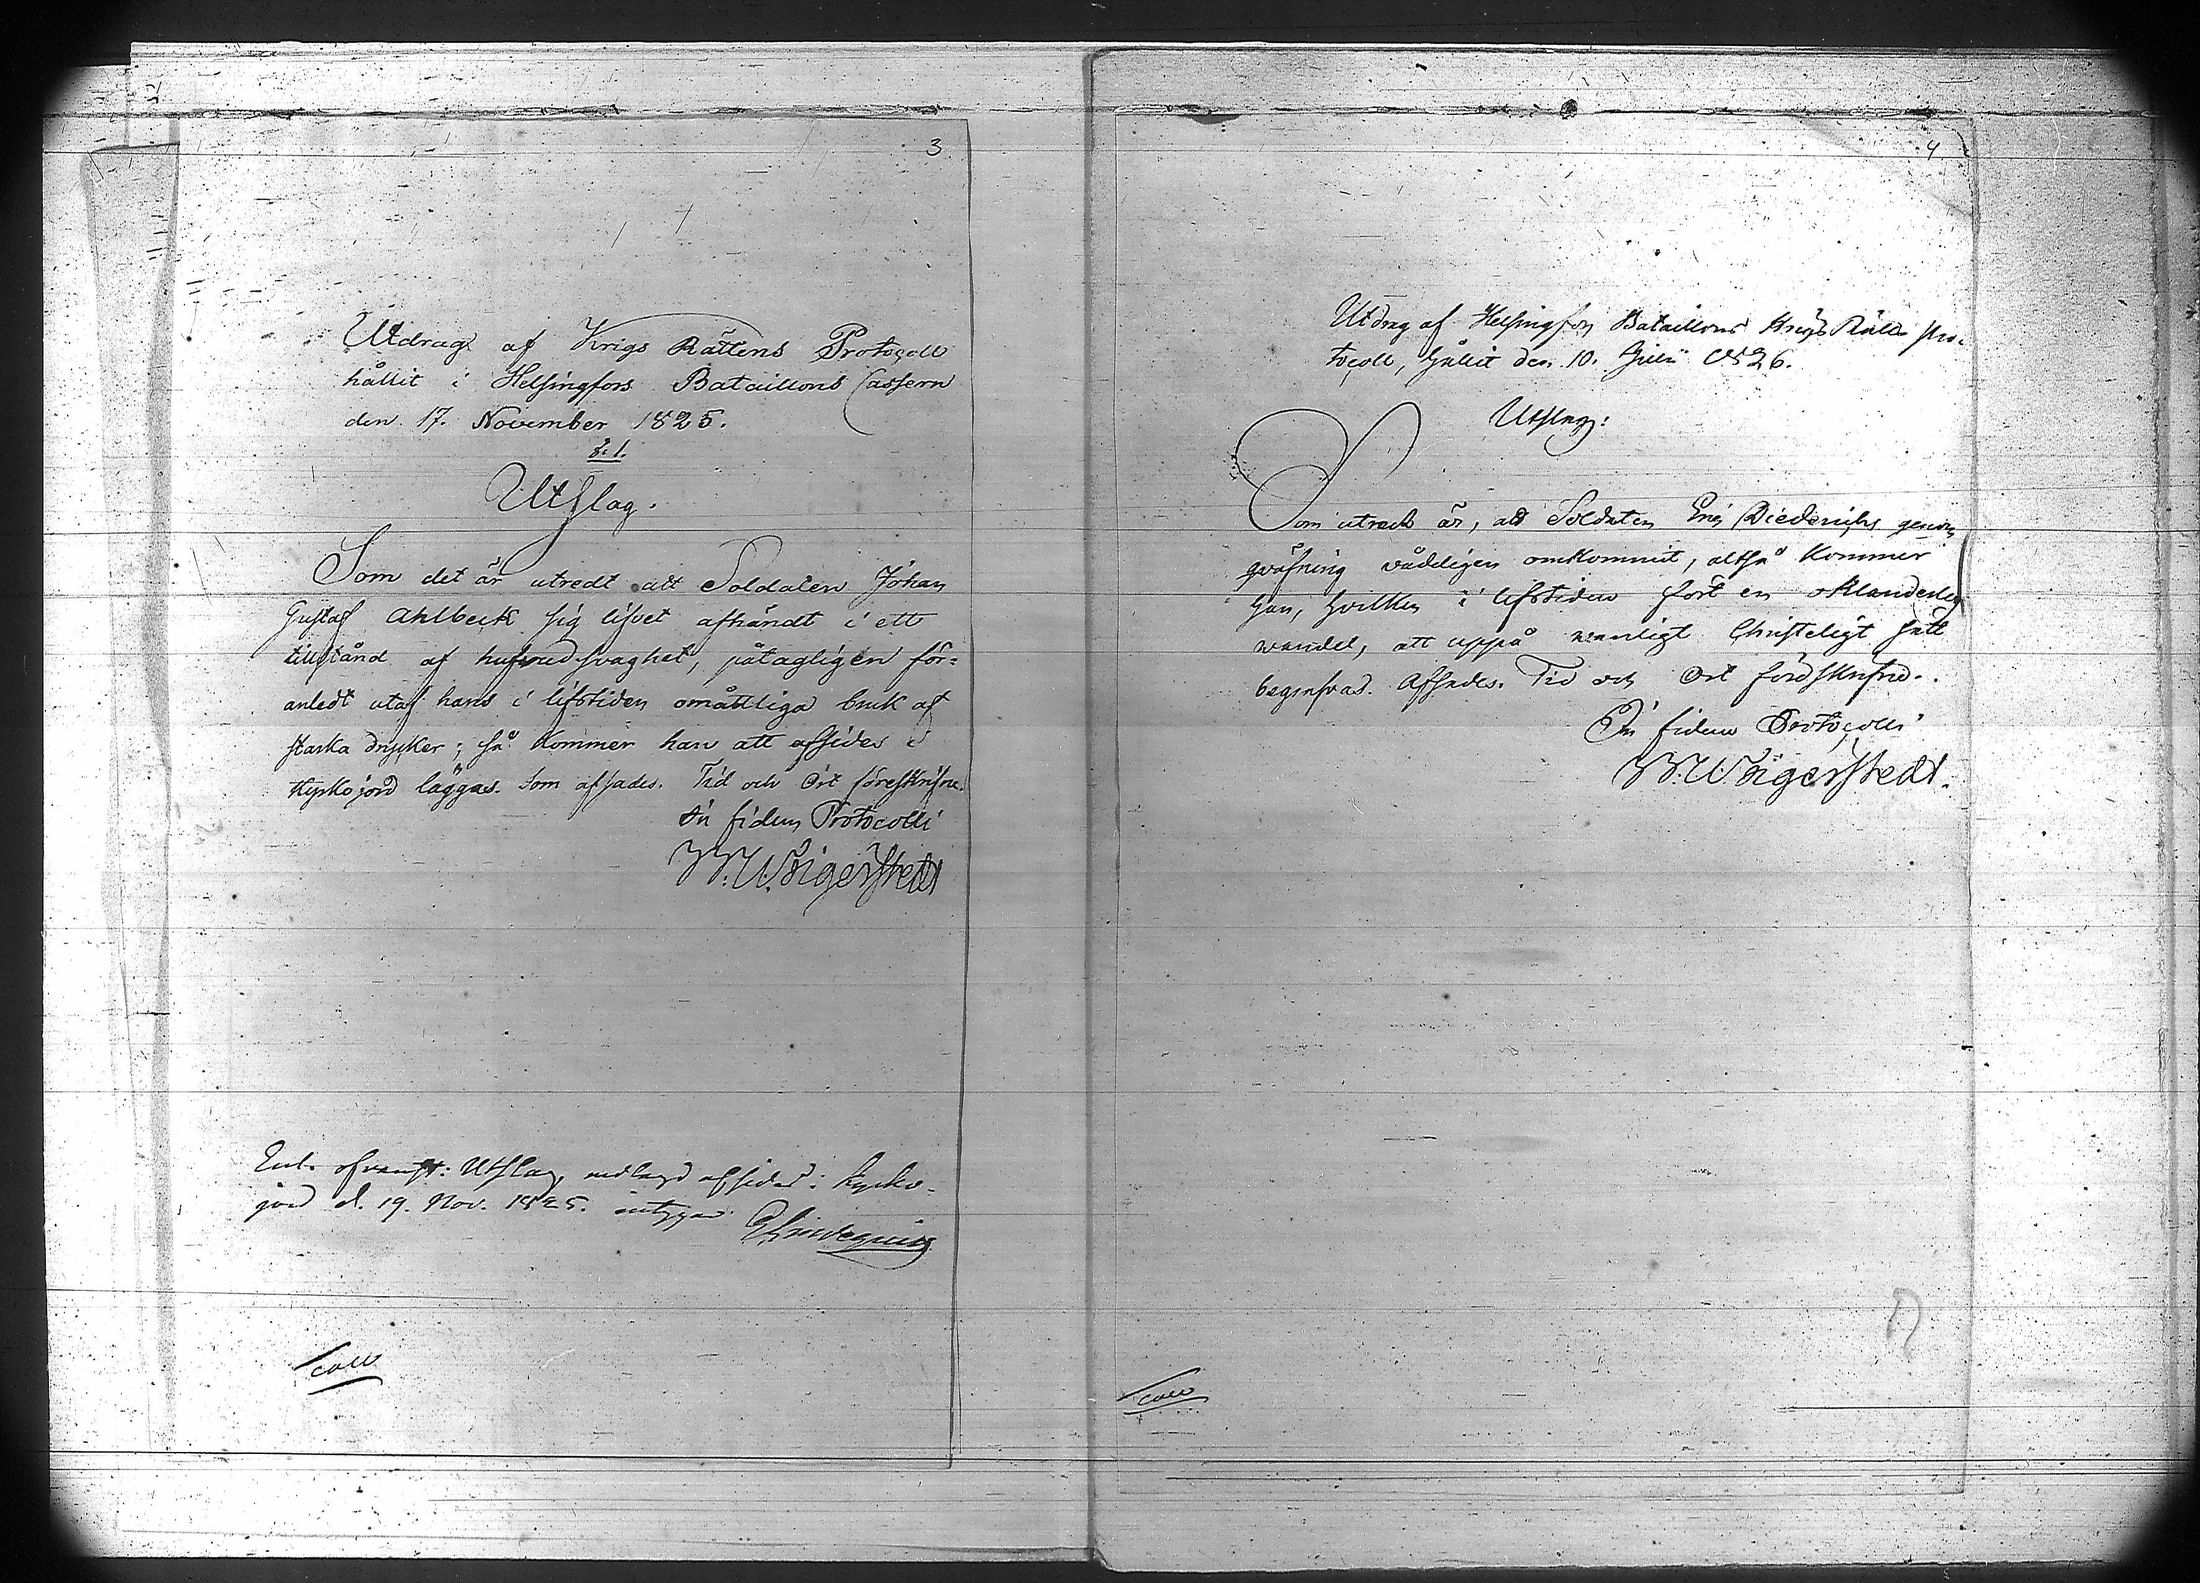 3
Utdrag af Krigs Rättens Protocoll
hållit i Helsingfors Bataillons Cassern
den 17. November 1825.
§. 1.
Utslag.
Som det är utredt att Soldaten Johan
Gustaf Ahlbeck sig lifvet afhändt i ett
tillstånd af hufvudsvaghet, påtagligen för-
anledt utaf hans i lifstiden omåttliga bruk af
starka drycker; så kommer han att afsides i
kyrkojord läggas. Som afsades. Tid och Ort föreskrifne.
In fidem Protocolli
W. U. Sigerstedt
Enl. ofvanst: Utslag, nedlagd afsides i kyrko-
jord d. 19. Nov. 1825. intygar
coll
4
Utdrag af Helsingfors Bataillons Krigs Rätts Pro-
tocoll, hållit den 10. Julii 1826.
Utslag:
Som utredt är, att Soldaten Eric Diederichs genom
qväfning vådeligen omkommit, altså kommer
han, hvilken i lifstiden fört en oklanderlig
vandel, att uppå vanligt Christeligt sätt
begrafvas. Afsades. Tid och Ort
In fidem Protocolli
W. U. Sigerstedt.
coll